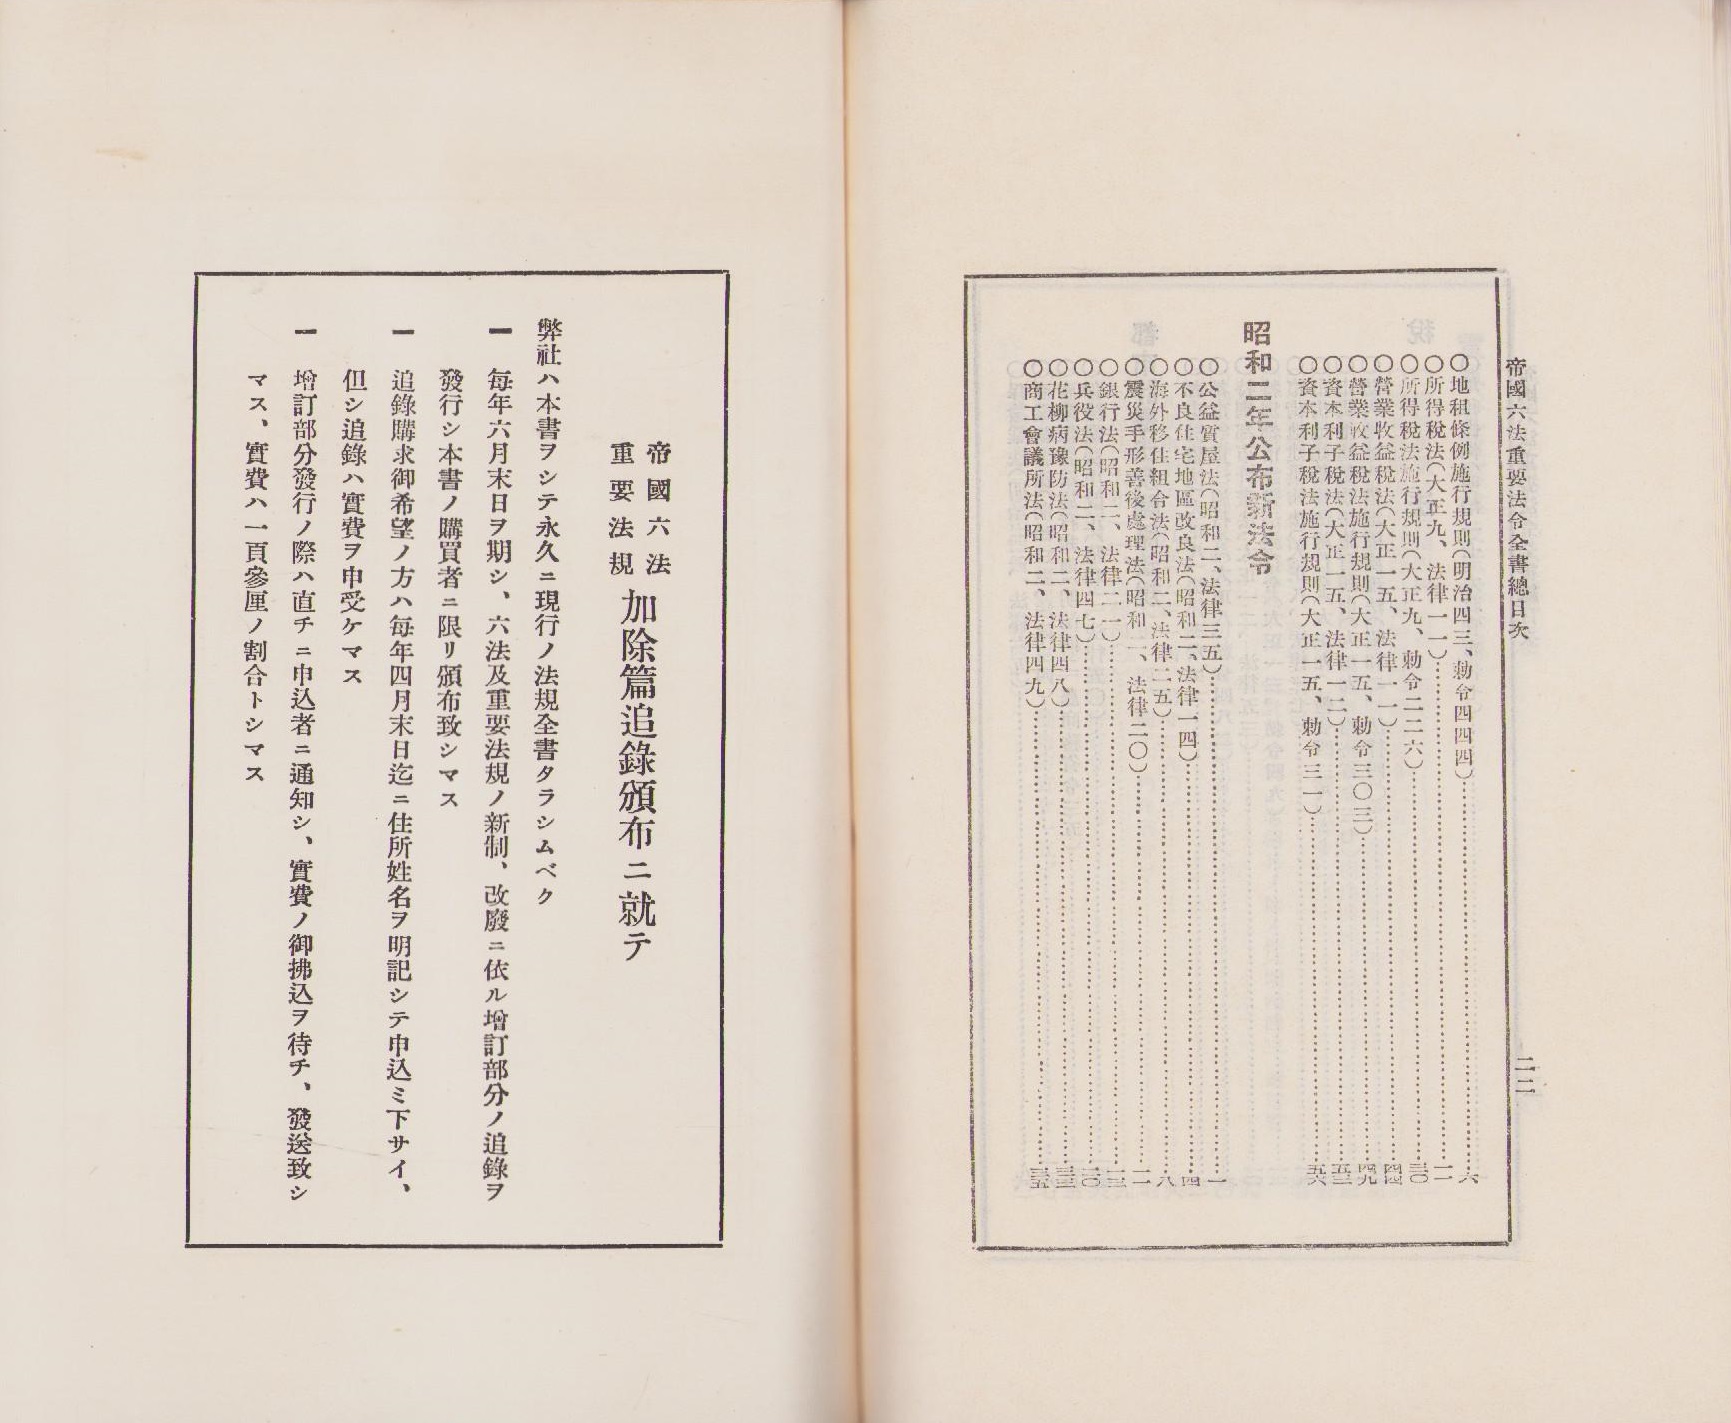 帝國六法重要法令全書總目次
二二
〇地租條例施行規則(明治四三、勅令四四四)……六
〇所得稅法(大正九、法律一一)……一一
〇所得稅法施行規則(大正九、勅令二二六)……三〇
〇營業收益稅法(大正一五、法律一一)……四四
〇營業收益稅法施行規則(大正一五、勅令三〇三)……四九
〇資本利子稅法(大正一五、法律一二)……五三
〇資本利子稅法施行規則(大正一五、勅令三一)……五六
昭和二年公布新法令
〇公益質屋法(昭和二、法律三五)……一
〇不良住宅地區改良法(昭和二、法律一四)……四
〇海外移住組合法(昭和二、法律二五)……八
〇震災手形善後處理法(昭和二、法律二〇)……一一
〇銀行法(昭和二、法律二一)……一三
〇兵役法(昭和二、法律四七)……二〇
〇花柳病豫防法(昭和二、法律四八)……三三
〇商工會議所法(昭和二、法律四九)……三五
帝國六法
重要法規
加除篇追錄頒布ニ就テ
弊社ハ本書ヲシテ永久ニ現行ノ法規全書タラシムベク
一 每年六月末日ヲ期シ、六法及重要法規ノ新制、改廢ニ依ル增訂部分ノ追錄ヲ
發行シ本書ノ購買者ニ限リ頒布致シマス
一 追錄購求御希望ノ方ハ每年四月末日迄ニ住所姓名ヲ明記シテ申込ミ下サイ、
但シ追錄ハ實費ヲ申受ケマス
一 增訂部分發行ノ際ハ直チニ申込者ニ通知シ、實費ノ御拂込ヲ待チ、發送致シ
マス、實費ハ一頁參厘ノ割合トシマス